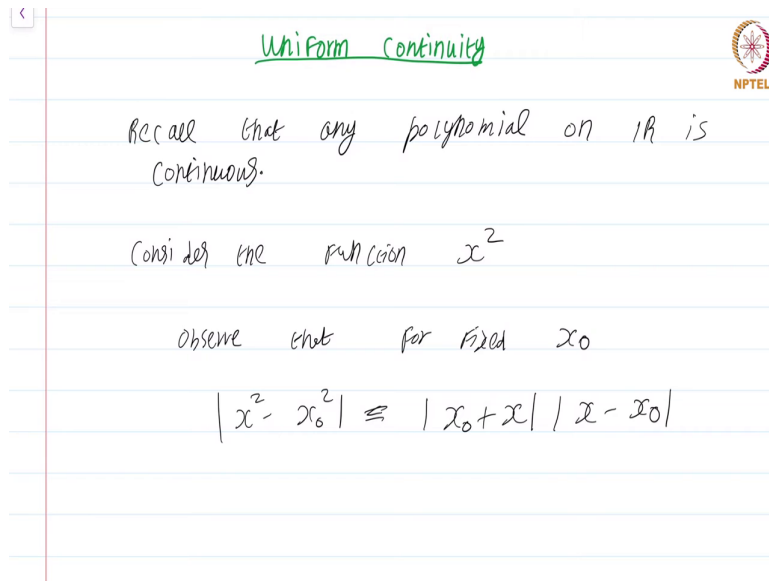 Uniform Continuity
NPTEL
Recall that any polynomial on IR is
continuous.
Consider the function x²
Observe that for fixed x₀
|x² - x₀²| ≤ |x₀ + x| |x - x₀|